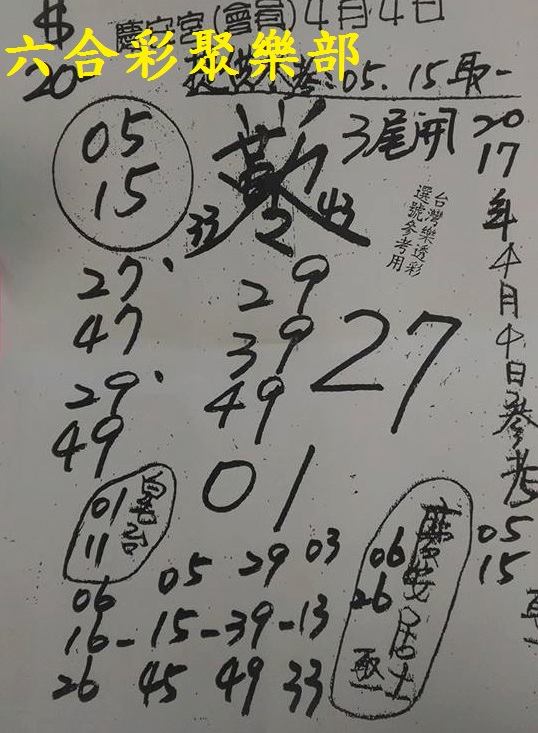 慶安宮(會員)4月4日
六合彩聚樂部
20
05.15取一
05
15
3尾開
2017年4月4日參考
台灣樂透彩
選號參考用
33
43
27
47
29
49
29
39
49
27
01
01
11
05 29 03
06
16-15-39-13
26 45 49 33
06
26
慶安居士
取
05
15
取